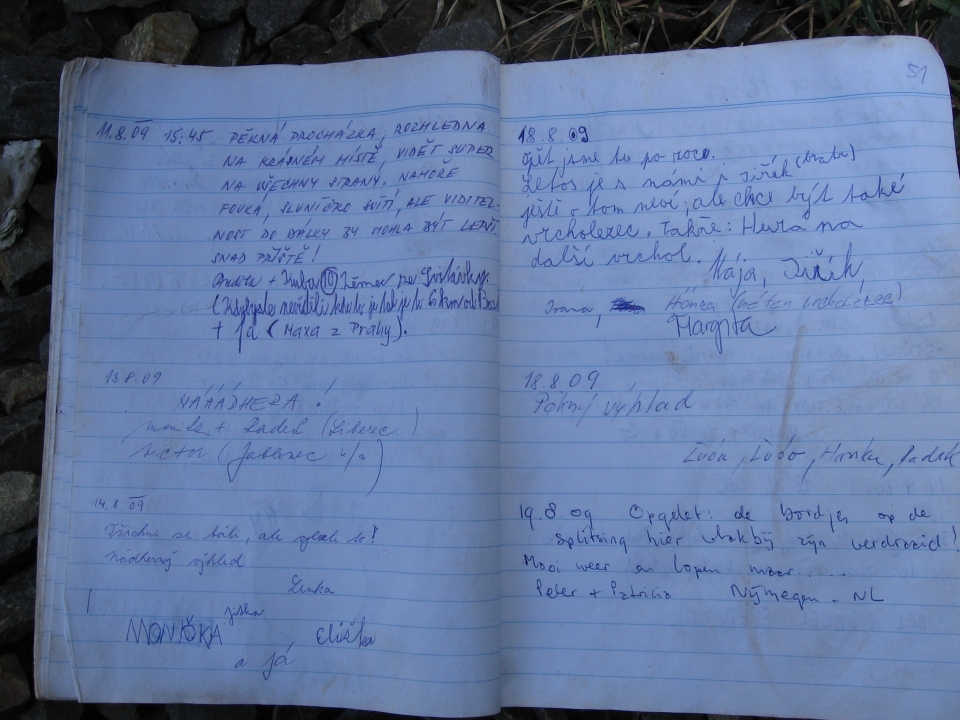 11.8.09 15:45 PĚKNÁ PROCHÁZKA, ROZHLEDNA
NA KRÁSNÉM MÍSTĚ, VIDĚT SUPER
NA VŠECHNY STRANY. NAHOŘE
FOUKÁ, SLUNÍČKO SVÍTÍ, ALE VIDITEL-
NOST DO DÁLKY BY MOHLA BÝT LEPŠÍ
SNAD PŘÍŠTĚ!
+ Kuba (10)
(Kdybyste nevěděli kde to je tak je to 6 km od
+ já (Maxa z Prahy).
13.8.09
NÁÁÁDHERA!
+ Radek (Liberec)
(Jablonec n/N)
14.8.09
Všichni se báli, ale vylezli to!
Nádherný výhled
Lenka
MONIČKA
Eliška
a já
51
18.8.09
Opět jsme tu po roce.
Letos je s námi i Jiřík (brácha)
ještě o tom neví, ale chce být také
vrcholovec. Takže: Hurá na
další vrchol. Kája, Jiřík
Hánca
Margita
18.8.09
Pěkný výhlad
Ľubo, Hanka, Radek
19.8.09 Opgelet: de bordjes op de
splitsing hier vlakbij zijn verdraaid!
Mooi weer en lopen maar.....
Peter + Patricia Nijmegen - NL